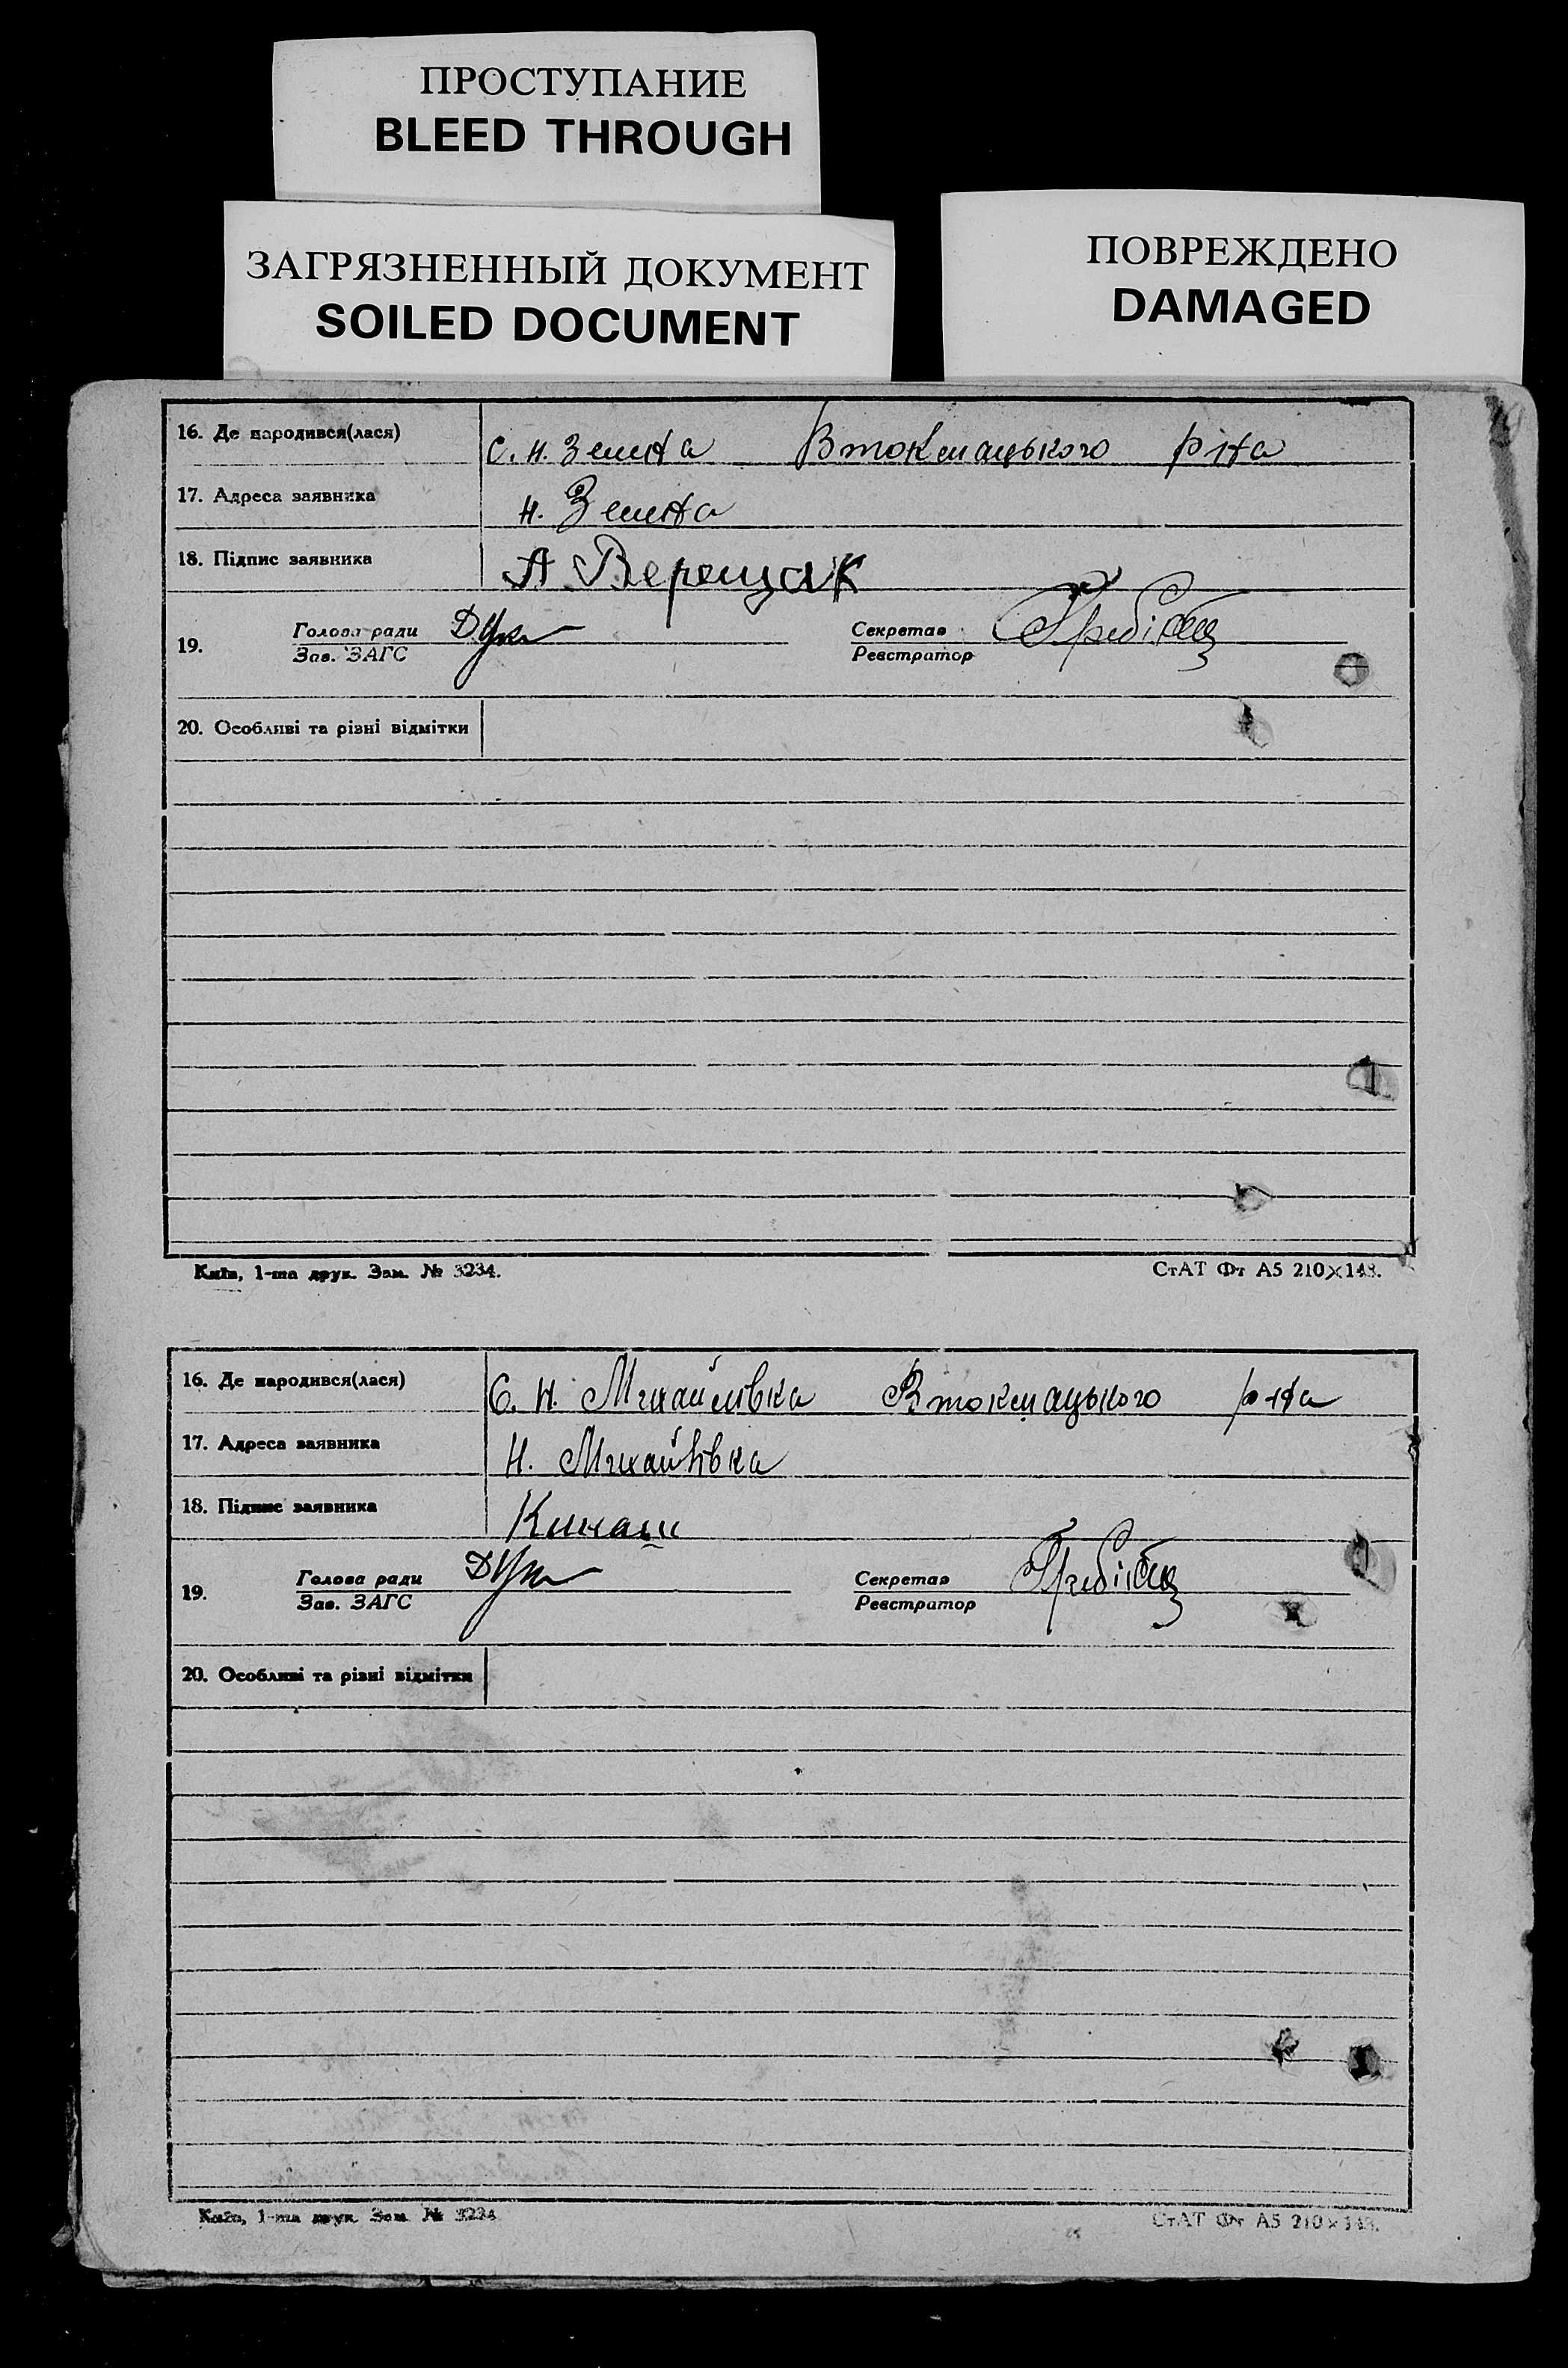 ПРОСТУПАНИЕ
BLEED THROUGH
ЗАГРЯЗНЕННЫЙ ДОКУМЕНТ
SOILED DOCUMENT
ПОВРЕЖДЕНО
DAMAGED
16. Де народився(лася) С. Н. Вток мацького р-на
17. Адреса заявника Н.
18. Підпис заявника А Верещак
19. Голова ради Секретар
Зав. ЗАГС Реєстратор
20. Особливі та різні відмітки
Київ, 1-ша друк. Зам. № 3234. СтАТ Фт А5 210×148.
16. Де народився(лася) С. Н. Михайлівка Втокмацького р-на
17. Адреса заявника Н. Михайлівка
18. Підпис заявника
19. Голова ради Секретар
Зав. ЗАГС Реєстратор
20. Особливі та різні відмітки
Київ, 1-ша друк. Зам. № 3234 СтАТ Фт А5 210×148.